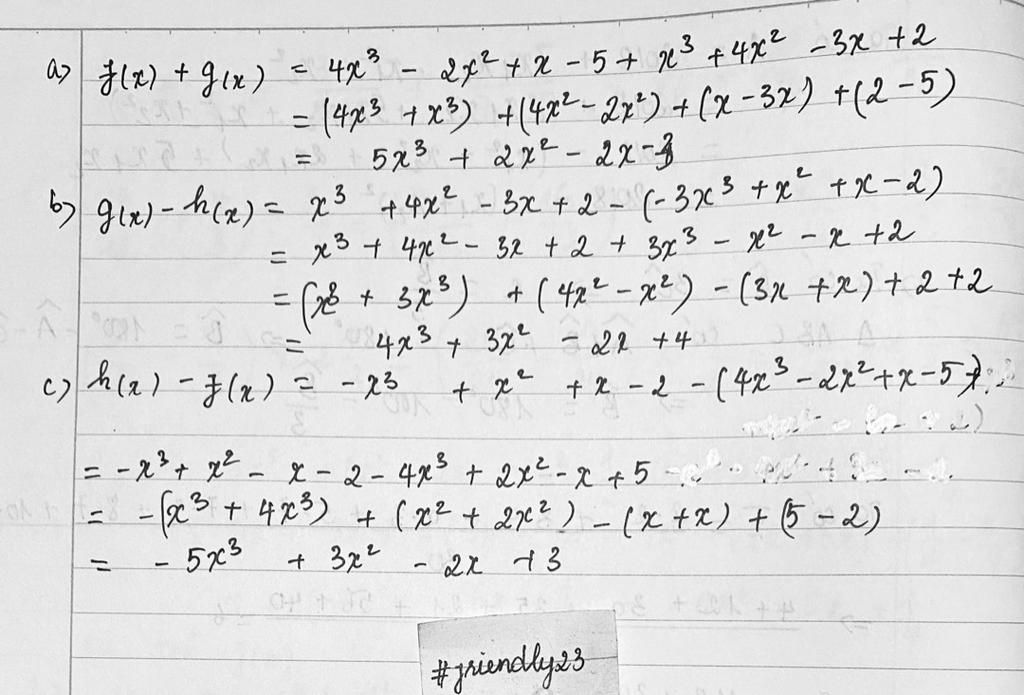 a) f(x) + g(x) = 4x³ - 2x² + x - 5 + x³ + 4x² - 3x + 2
= (4x³ + x³) + (4x² - 2x²) + (x - 3x) + (2 - 5)
= 5x³ + 2x² - 2x - 3
b) g(x) - h(x) = x³ + 4x² - 3x + 2 - (-3x³ + x² + x - 2)
= x³ + 4x² - 3x + 2 + 3x³ - x² - x + 2
= (x³ + 3x³) + (4x² - x²) - (3x + x) + 2 + 2
= 4x³ + 3x² - 2x + 4
c) h(x) - f(x) = -x³ + x² + x - 2 - (4x³ - 2x² + x - 5)
= -x³ + x² - x - 2 - 4x³ + 2x² - x + 5
= -(x³ + 4x³) + (x² + 2x²) - (x + x) + (5 - 2)
= -5x³ + 3x² - 2x + 3
#friendly23